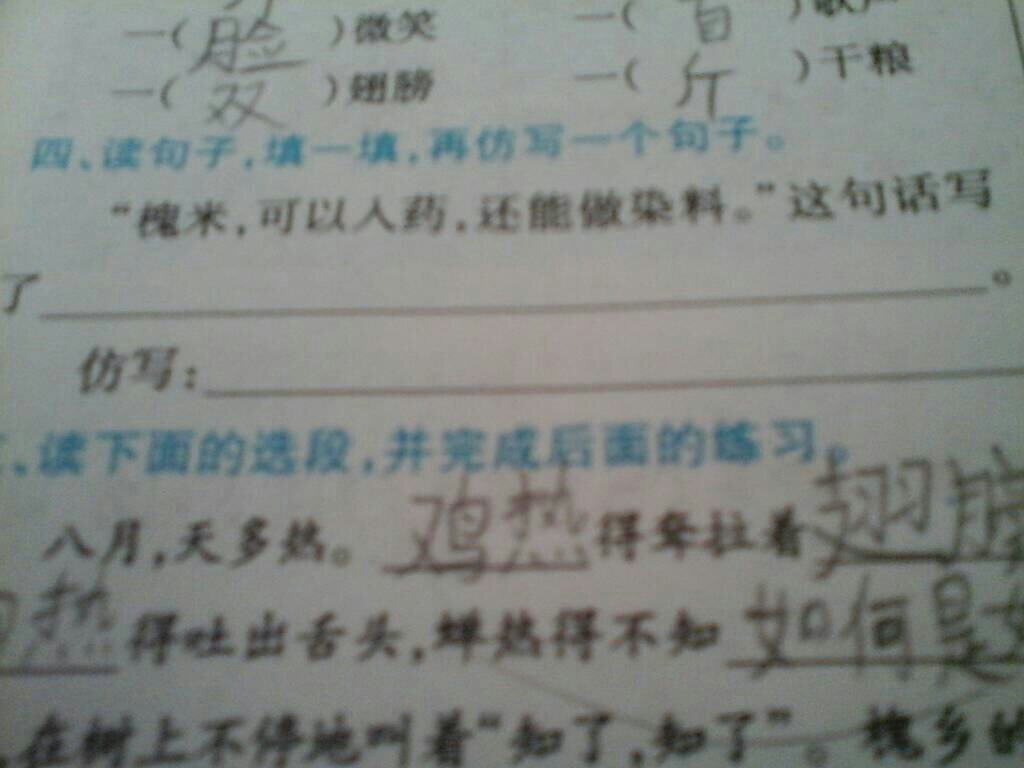 一(脸)微笑 一(首)歌声
一(双)翅膀 一(斤)干粮
四、读句子,填一填,再仿写一个句子。
“槐米,可以入药,还能做染料。”这句话写
了 。
仿写:
、读下面的选段,并完成后面的练习。
八月,天多热。鸡热得耷拉着翅膀
热得吐出舌头,蝉热得不知如何是
,在树上不停地叫着“知了,知了”。槐乡的